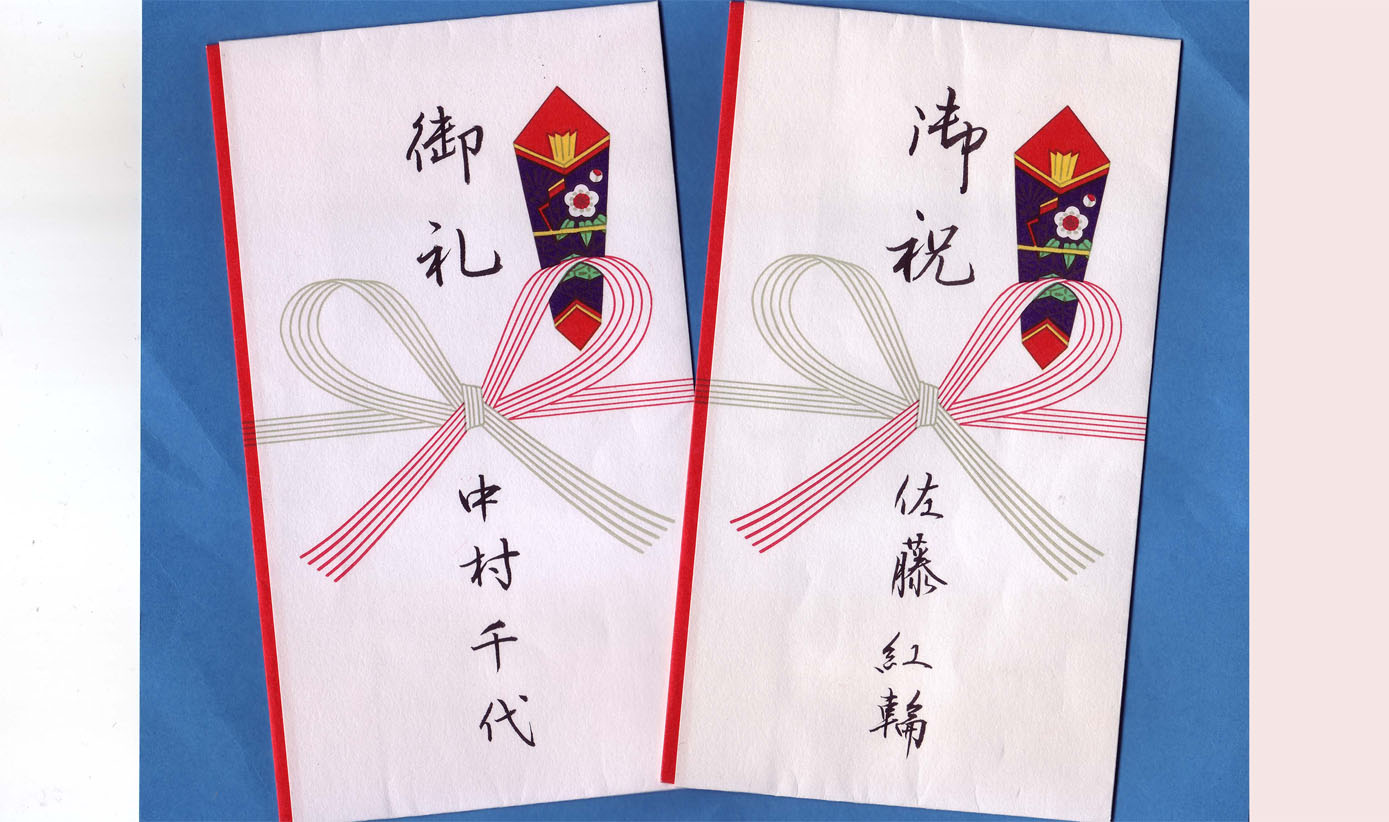 御礼
中村千代
御祝
佐藤紅輪